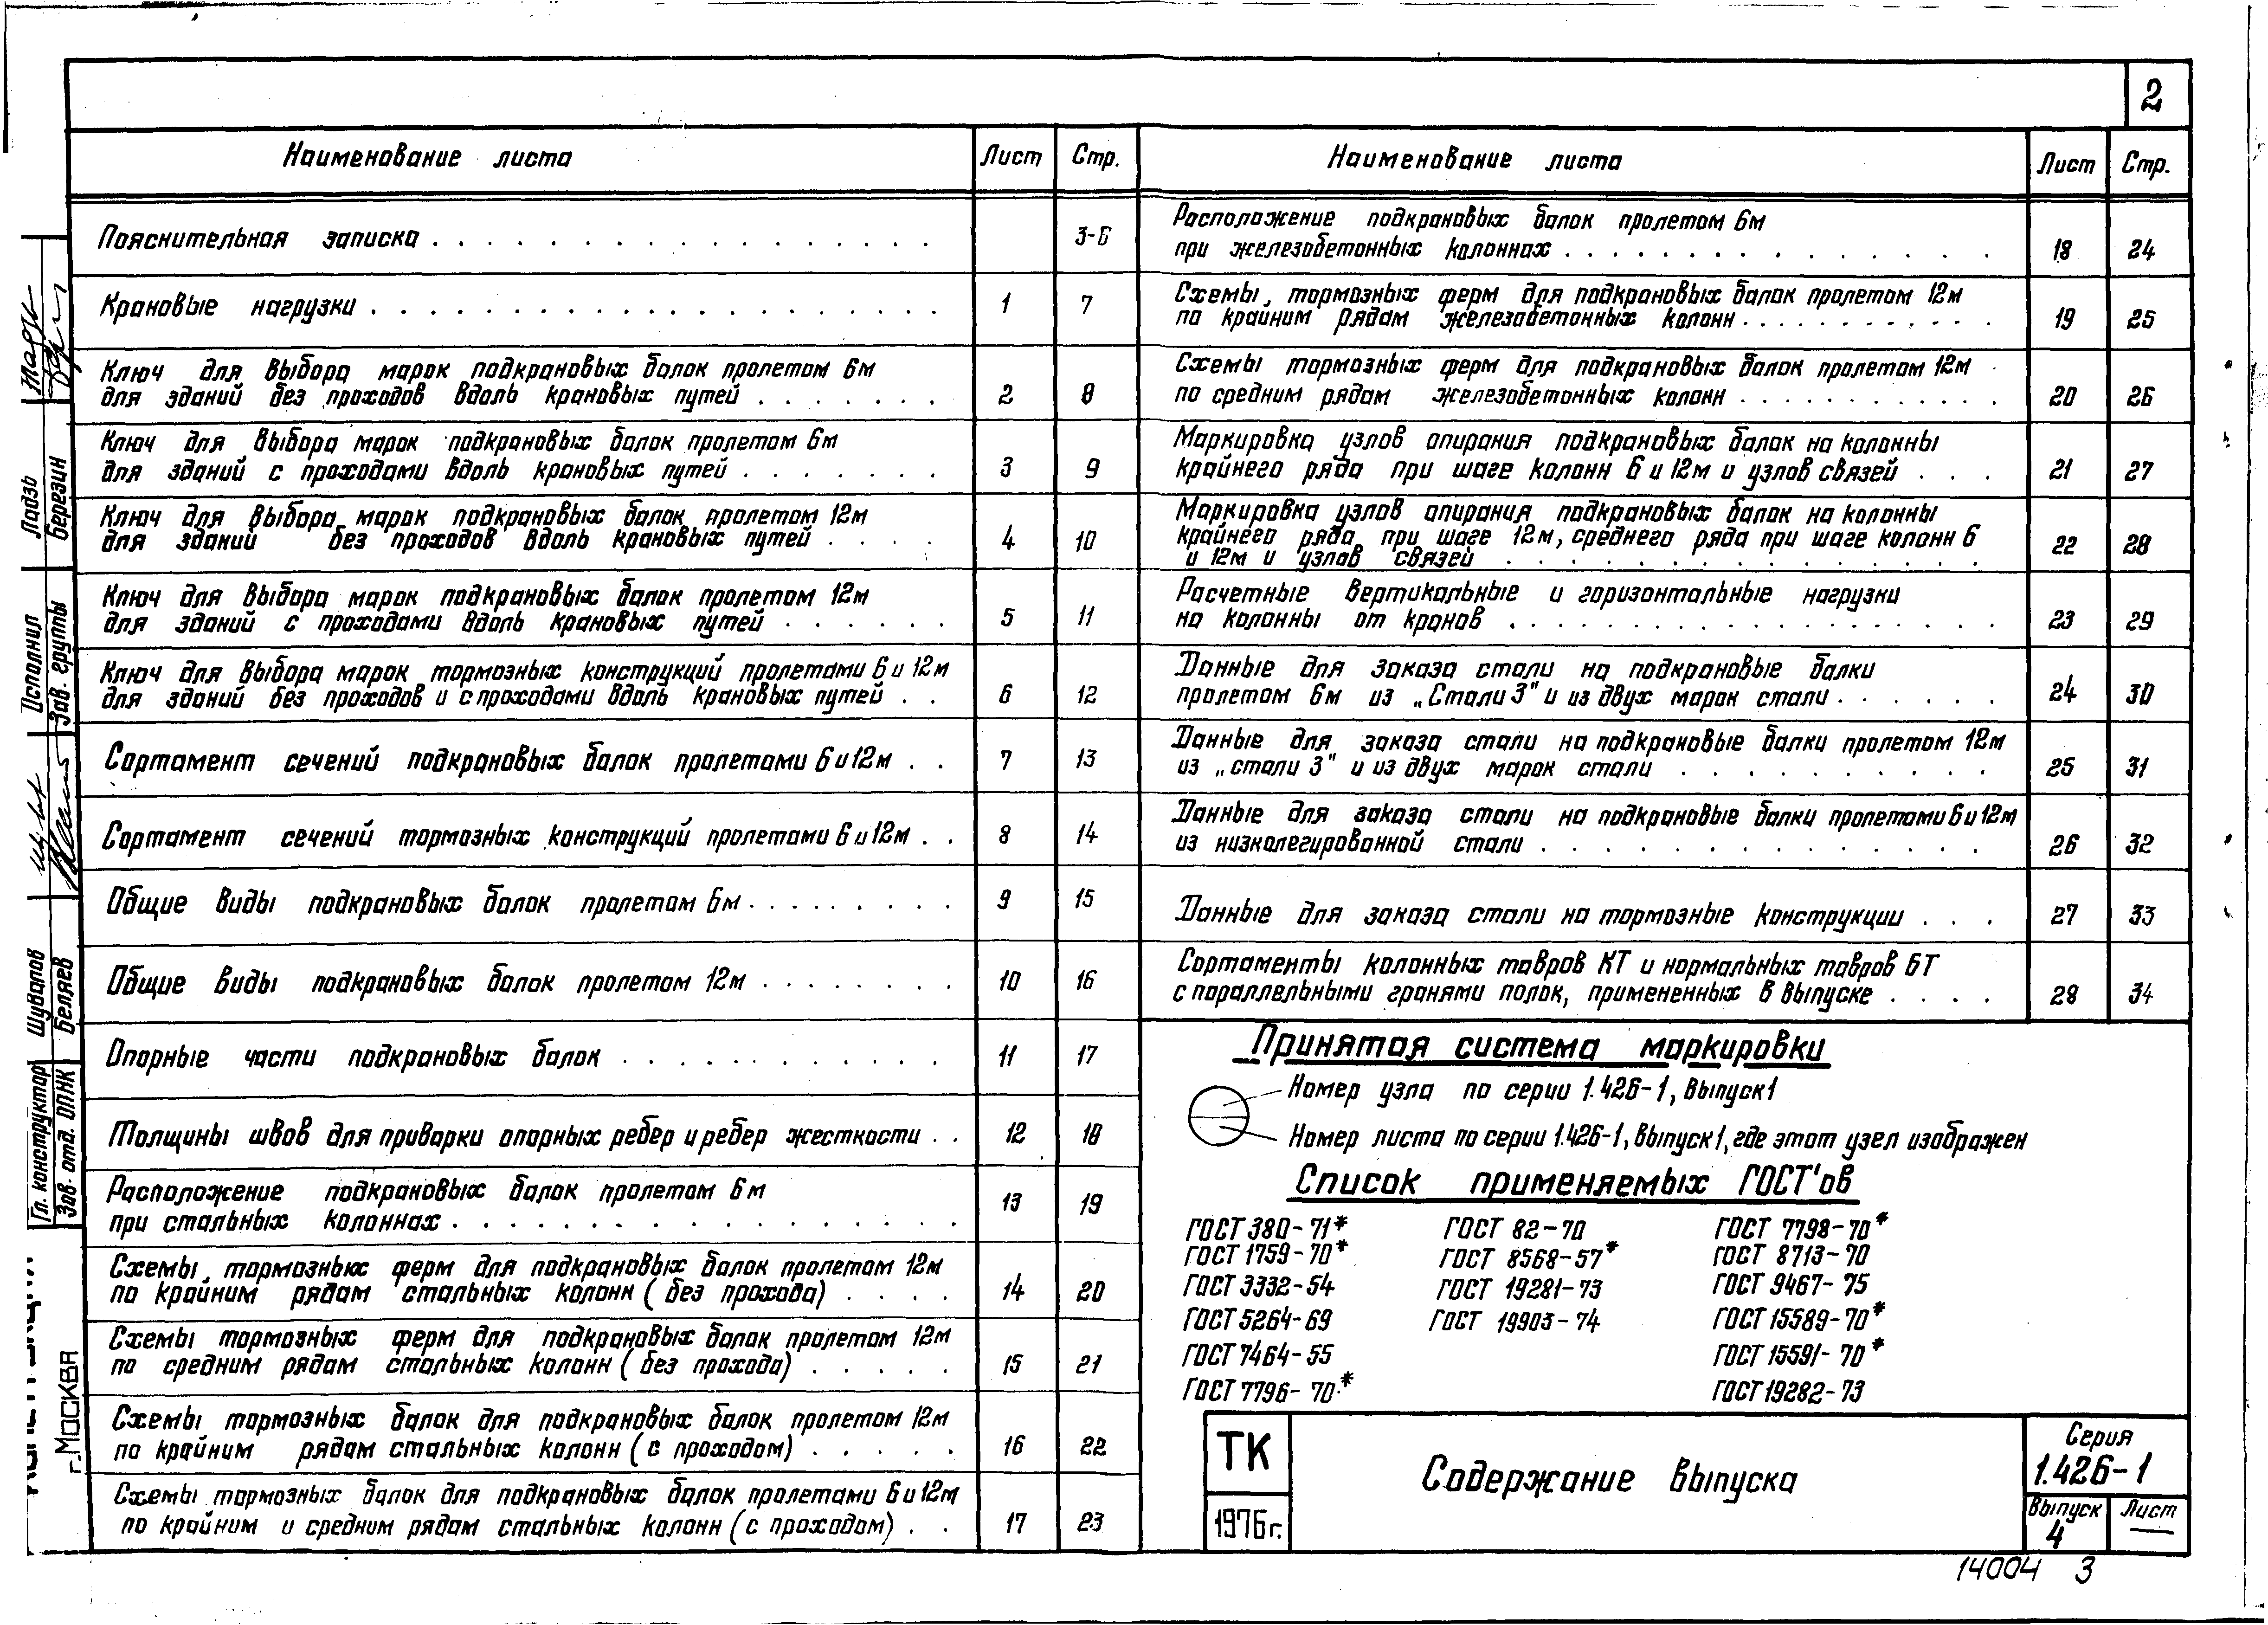 2
Наименование листа Лист Стр.
Пояснительная записка . . . 3-6
Крановые нагрузки . . . 1 7
Ключ для выбора марок подкрановых балок пролетом 6м
для зданий без проходов вдоль крановых путей . . . 2 8
Ключ для выбора марок подкрановых балок пролетом 6м
для зданий с проходами вдоль крановых путей . . . 3 9
Ключ для выбора марок подкрановых балок пролетом 12м
для зданий без проходов вдоль крановых путей . . . 4 10
Ключ для выбора марок подкрановых балок пролетом 12м
для зданий с проходами вдоль крановых путей . . . 5 11
Ключ для выбора марок тормозных конструкций пролетами 6 и 12м
для зданий без проходов и с проходами вдоль крановых путей . . 6 12
Сортамент сечений подкрановых балок пролетами 6 и 12м . . 7 13
Сортамент сечений тормозных конструкций пролетами 6 и 12м . . 8 14
Общие виды подкрановых балок пролетом 6м . . . 9 15
Общие виды подкрановых балок пролетом 12м . . . 10 16
Опорные части подкрановых балок . . . 11 17
Толщины швов для приварки опорных ребер и ребер жесткости . . 12 18
Расположение подкрановых балок пролетом 6м
при стальных колоннах . . . 13 19
Схемы тормозных ферм для подкрановых балок пролетом 12м
по крайним рядам стальных колонн (без прохода) . . . . 14 20
Схемы тормозных ферм для подкрановых балок пролетом 12м
по средним рядам стальных колонн (без прохода) . . . . . 15 21
Схемы тормозных балок для подкрановых балок пролетом 12м
по крайним рядам стальных колонн (с проходом) . . . . . 16 22
Схемы тормозных балок для подкрановых балок пролетами 6 и 12м
по крайним и средним рядам стальных колонн (с проходом) . . 17 23
Наименование листа Лист Стр.
Расположение подкрановых балок пролетом 6м
при железобетонных колоннах . . . 18 24
Схемы тормозных ферм для подкрановых балок пролетом 12м
по крайним рядам железобетонных колонн . . . 19 25
Схемы тормозных ферм для подкрановых балок пролетом 12м
по средним рядам железобетонных колонн . . . 20 26
Маркировка узлов опирания подкрановых балок на колонны
крайнего ряда при шаге колонн 6 и 12м и узлов связей . . . 21 27
Маркировка узлов опирания подкрановых балок на колонны
крайнего ряда при шаге 12м, среднего ряда при шаге колонн 6
и 12м и узлов связей . . . 22 28
Расчетные вертикальные и горизонтальные нагрузки
на колонны от кранов . . . 23 29
Данные для заказа стали на подкрановые балки
пролетом 6м из „Стали 3" и из двух марок стали . . . 24 30
Данные для заказа стали на подкрановые балки пролетом 12м
из „стали 3" и из двух марок стали . . . 25 31
Данные для заказа стали на подкрановые балки пролетами 6 и 12м
из низколегированной стали . . . 26 32
Данные для заказа стали на тормозные конструкции . . . 27 33
Сортаменты колонных тавров КТ и нормальных тавров БТ
с параллельными гранями полок, примененных в выпуске . . . . 28 34
Принятая система маркировки
Номер узла по серии 1.426-1, выпуск 1
Номер листа по серии 1.426-1, выпуск 1, где этот узел изображен
Список применяемых ГОСТ'ов
ГОСТ 380-71* ГОСТ 82-70 ГОСТ 7798-70*
ГОСТ 1759-70* ГОСТ 8568-57* ГОСТ 8713-70
ГОСТ 3332-54 ГОСТ 19281-73 ГОСТ 9467-75
ГОСТ 5264-69 ГОСТ 19903-74 ГОСТ 15589-70*
ГОСТ 7464-55 ГОСТ 15591-70*
ГОСТ 7796-70* ГОСТ 19282-73
ТК
1976г.
Содержание выпуска
Серия
1.426-1
Выпуск Лист
4 —
14004 3
Гл. конструктор Шувалов
Зав. отд. ОПНК Беляев
Исполнил Ладзь
Зав. группы Березин
г. Москва